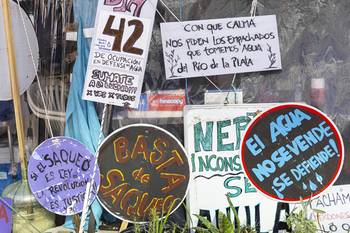 DIA
42
DE OCUPACIÓN
EN DEFENSA DEL
AGUA
SUMATE
CON QUE CALMA
NOS PIDEN LOS EMPACHADOS
QUE TOMEMOS AGUA
DEL RÍO DE LA PLATA
SI EL
SAQUEO
ES LEY
REVOLUCIÓN
ES JUSTICIA
BASTA
DE
SAQUEO
NEP
INCONS
SE
ANULA
EL AGUA
NO SE VENDE
¡SE DEFIENDE!